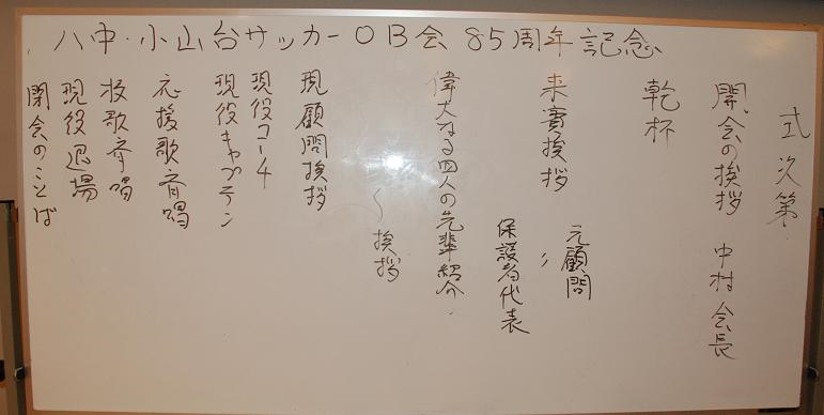 八中・小山台サッカーOB会 85周年記念
式次第
開会の挨拶 中村会長
乾杯
来賓挨拶 元顧問
〃
保護者代表
偉大なる四人の先輩紹介
〜挨拶
現顧問挨拶
現役コーチ
現役キャプテン
応援歌斉唱
校歌斉唱
現役退場
閉会のことば